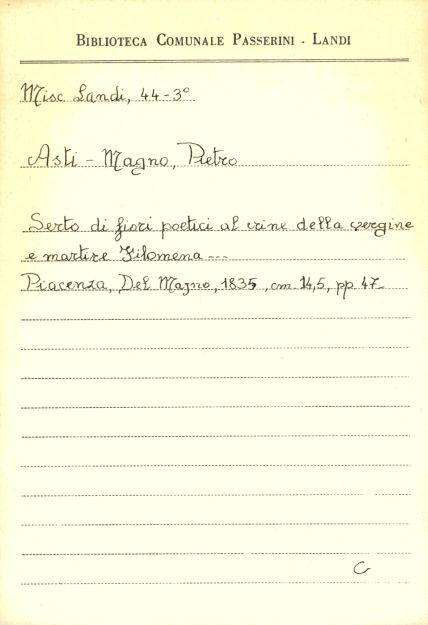 BIBLIOTECA COMUNALE PASSERINI - LANDI
Misc Landi, 44-3°
Asti - Magno, Pietro
Serto di fiori poetici al crine della vergine
e martire Filomena ---
Piacenza, Del Magno, 1835, cm. 14,5, pp. 47
G